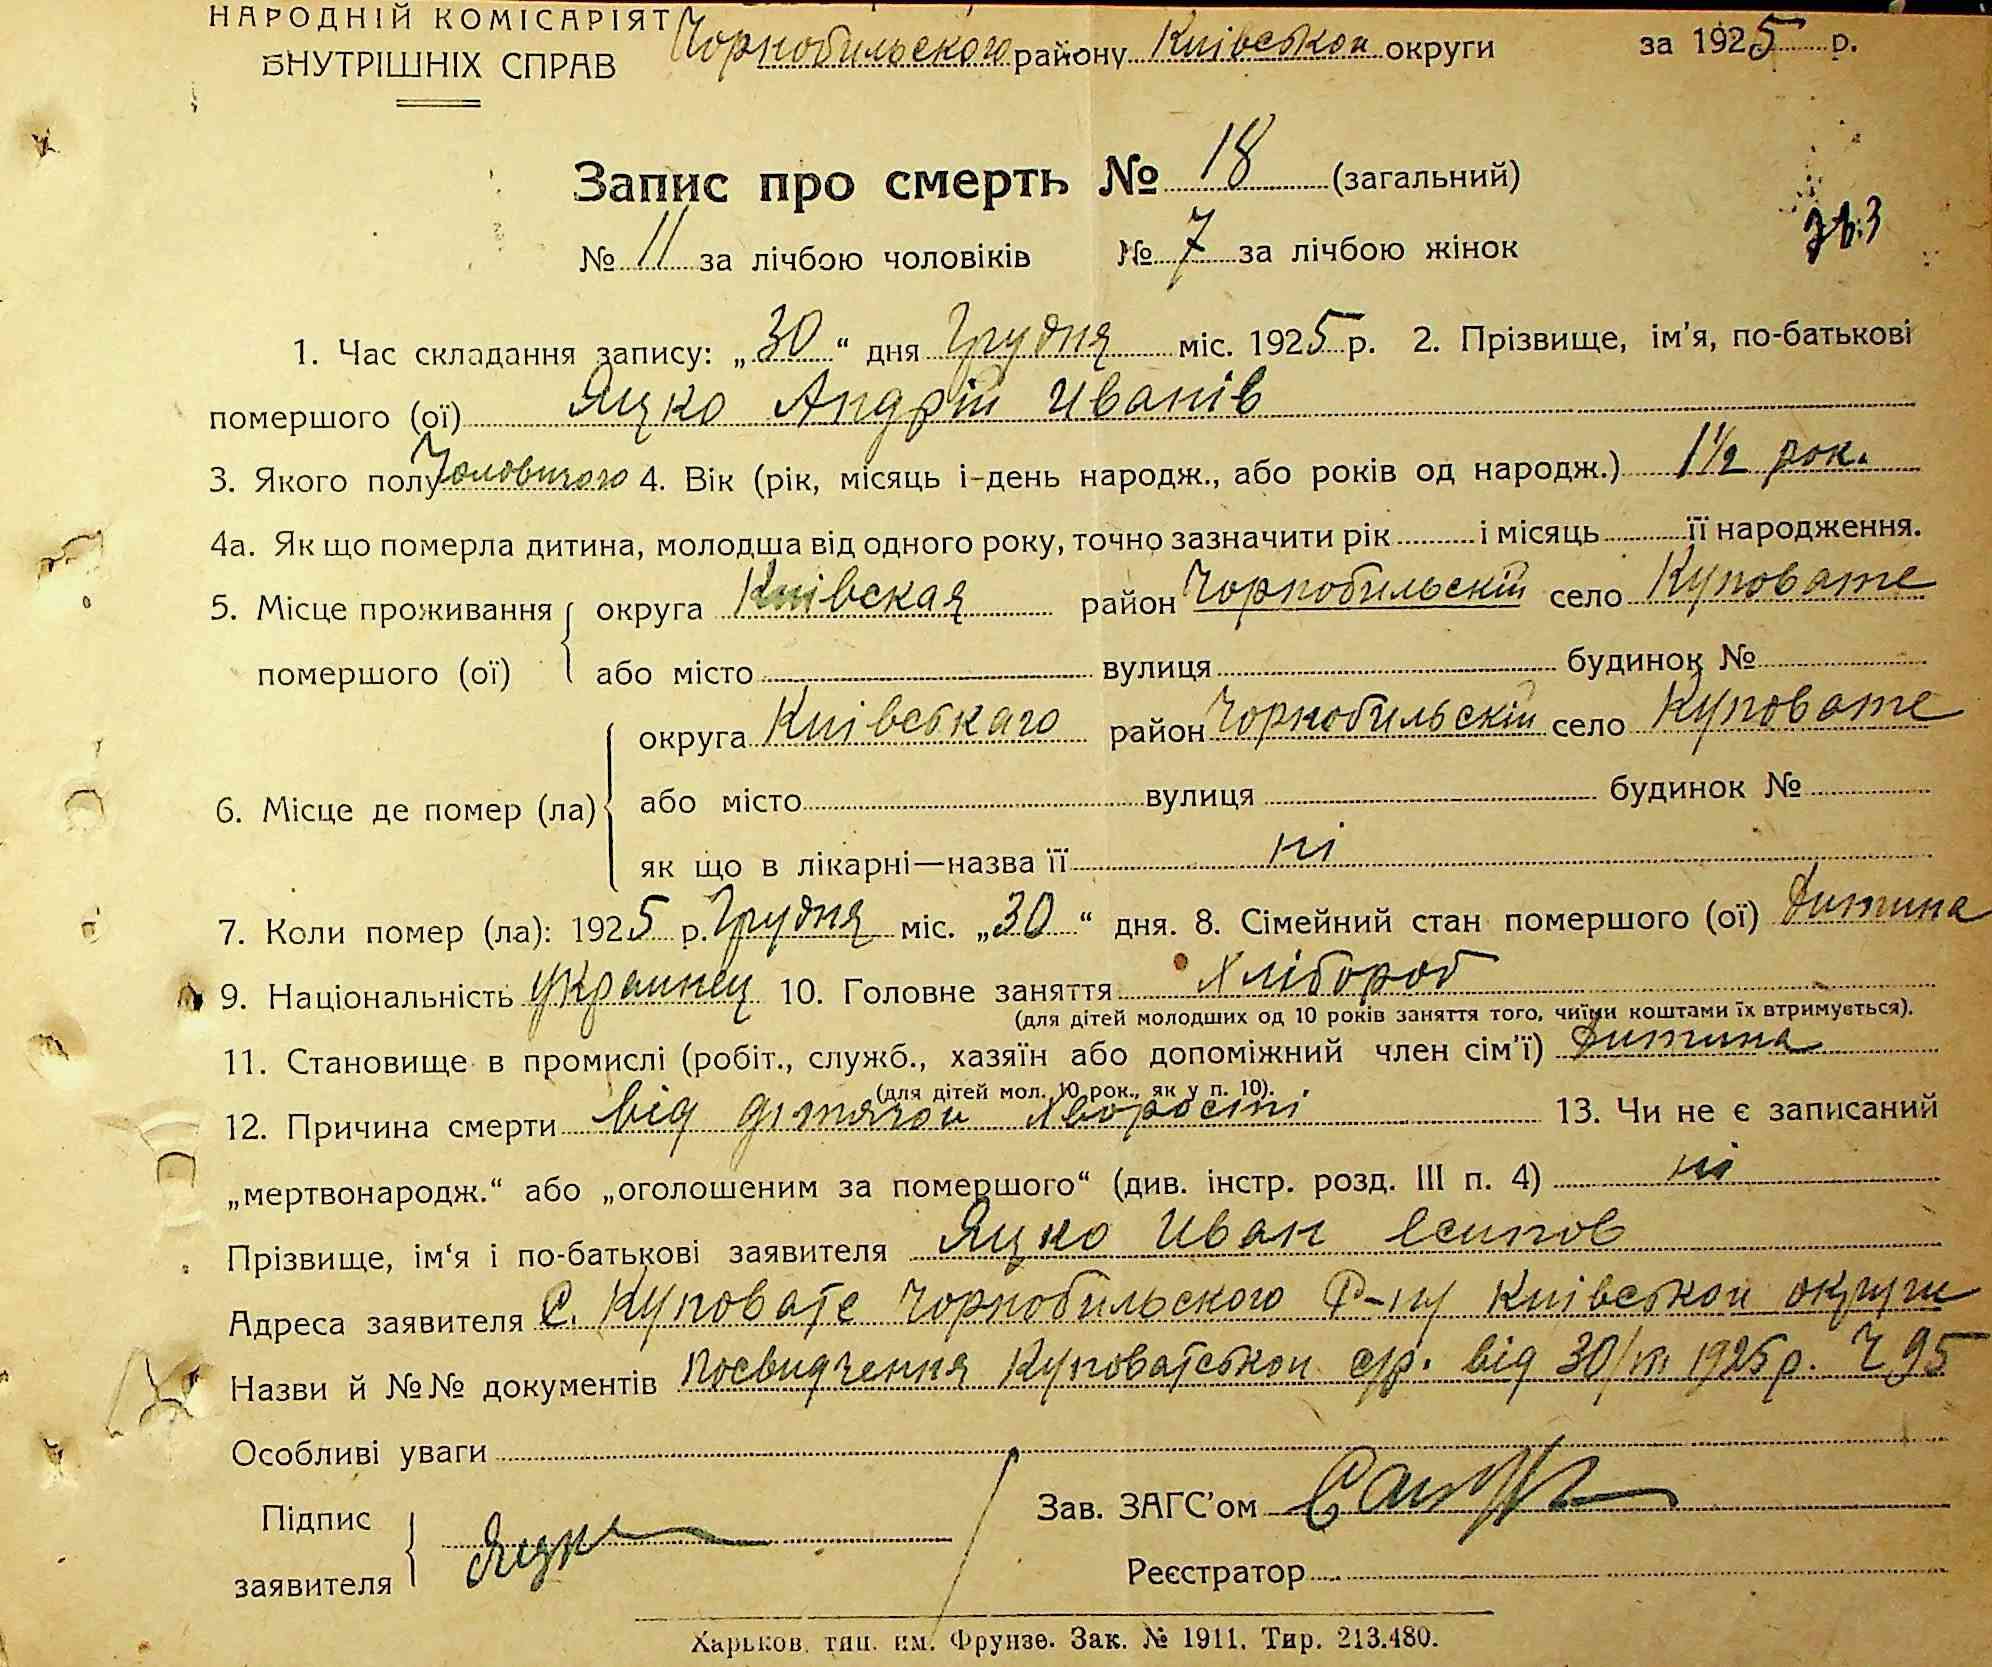 НАРОДНІЙ КОМІСАРІЯТ
ВНУТРІШНІХ СПРАВ
Чорнобильского району Київськои округи за 1925 р.
Запис про смерть № 18 (загальний)
№ 11 за лічбою чоловіків № 7 за лічбою жінок
1. Час складання запису: „30“ дня Грудня міс. 1925 р. 2. Прізвище, ім'я, по-батькові
помершого (ої) Яцко Андрій Иванів
3. Якого полу Чоловичого 4. Вік (рік, місяць і-день народж., або років од народж.) 1½ рок.
4а. Як що померла дитина, молодша від одного року, точно зазначити рік і місяць її народження.
5. Місце проживання округа Київская район Чорнобильскій село Куповате
помершого (ої) або місто вулиця будинок №
округа Київськаго район Чорнобильскій село Куповате
6. Місце де помер (ла) або місто вулиця будинок №
як що в лікарні—назва її ні
7. Коли помер (ла): 1925 р. Грудня міс. „30“ дня. 8. Сімейний стан помершого (ої) дитина
9. Національність украинец 10. Головне заняття Хлібороб
(для дітей молодших од 10 років заняття того, чиїми коштами їх втримується).
11. Становище в промислі (робіт., служб., хазяїн або допоміжний член сім'ї) дитина
(для дітей мол. 10 рок., як у п. 10).
12. Причина смерти від дітячои хворости 13. Чи не є записаний
„мертвонародж.“ або „оголошеним за помершого“ (див. інстр. розд. III п. 4) ні
Прізвище, ім'я і по-батькові заявителя Яцко Иван Есипов
Адреса заявителя С. Куповате Чорнобильского Р-ну Київськои округи
Назви й №№ документів посвидчення Куповатськои с/р. від 30/ 1925 р. Ч 95
Особливі уваги
Підпис
заявителя Яцко
Зав. ЗАГС'ом
Реєстратор
Харьков. тип. им. Фрунзе. Зак. № 1911. Тир. 213.480.